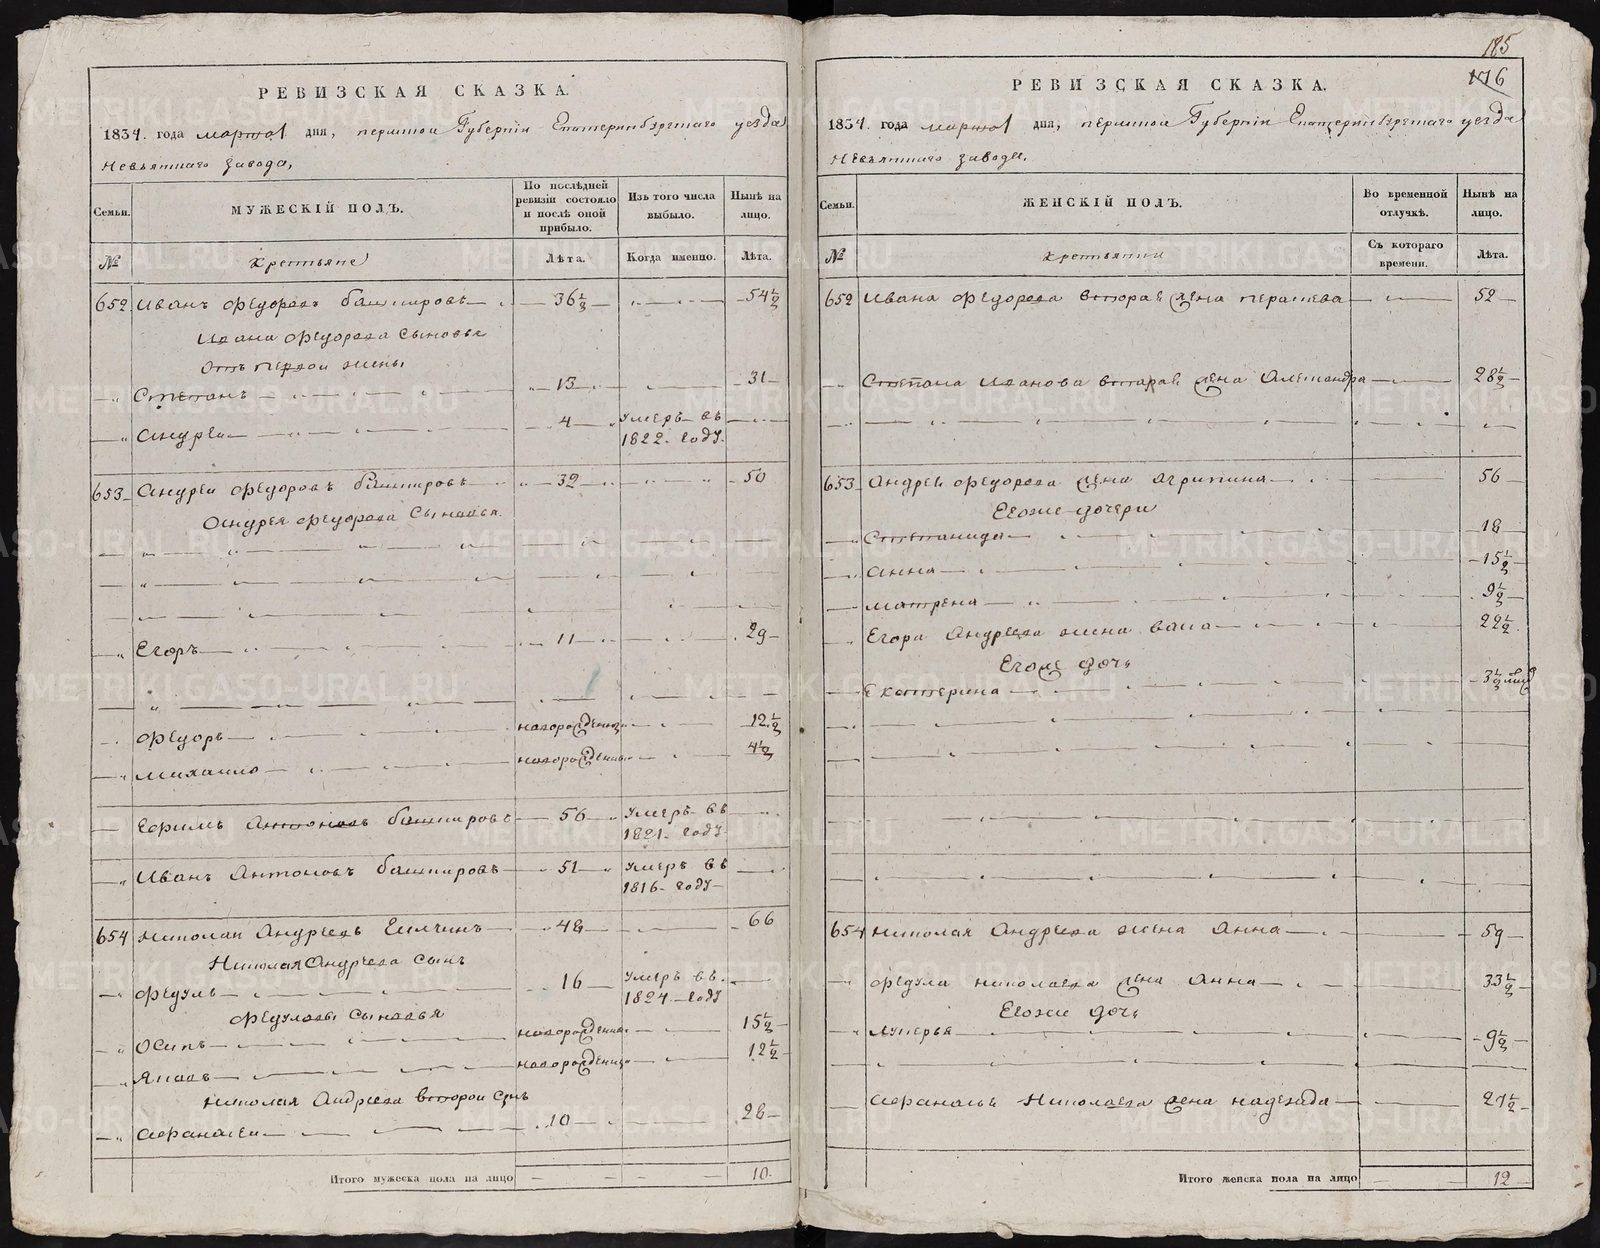 185
176
РЕВИЗСКАЯ СКАЗКА.
1834. года марта 1 дня, пермской Губерніи Екатеринбургскаго уезда
Невьянскаго завода,
Семьи.
МУЖЕСКІЙ ПОЛЪ.
По послѣдней ревизіи состояло и послѣ оной прибыло.
Изъ того числа выбыло.
Нынѣ на лицо.
№
Крестьяне
Лѣта.
Когда именно.
Лѣта.
652 Иванъ Федоровъ башкировъ 36½ 54½
Ивана Федорова сыновья
отъ первой жены
Степанъ 13 31
Андрей 4 умеръ въ 1822. году.
653 Андрей Федоровъ башкировъ 32 50
Андрея Федорова сыновья
Егоръ 11 29
Федоръ новорожденный 12½
Михайло новорожденный 4½
Ефимъ Антоновъ башкировъ 56 умеръ въ 1821. году
Иванъ Антоновъ башкировъ 51 умеръ въ 1816. году
654 Николай Андреевъ 48 66
Николая Андреева сынъ
Федулъ 16 умеръ въ 1824. году
Федуловы сыновья
Осипъ новорожденный 15½
Яковъ новорожденный 12½
Николая Андреева второй сынъ
Афанасей 10 28
Итого мужеска пола на лицо 10.
РЕВИЗСКАЯ СКАЗКА.
1834. года марта 1 дня, пермской Губерніи Екатеринбургскаго уезда
Невьянскаго завода,
Семьи.
ЖЕНСКІЙ ПОЛЪ.
Во временной отлучкѣ.
Нынѣ на лицо.
№
Крестьянки
Съ котораго времени.
Лѣта.
652 Ивана Федорова вторая жена 52
Степана Иванова вторая жена Александра 28½
653 Андрея Федорова жена Агрипина 56
Егоже дочери
Степанида 18
Анна 15½
Матрена 9½
Егора Андреева жена 22½
Егоже дочь
Екатерина 3½
654 Николая Андреева жена Анна 59
Федула Николаева жена Анна 33½
Егоже дочь
Лукерья 9½
Афанасья Николаева жена надежда 27½
Итого женска пола на лицо 12